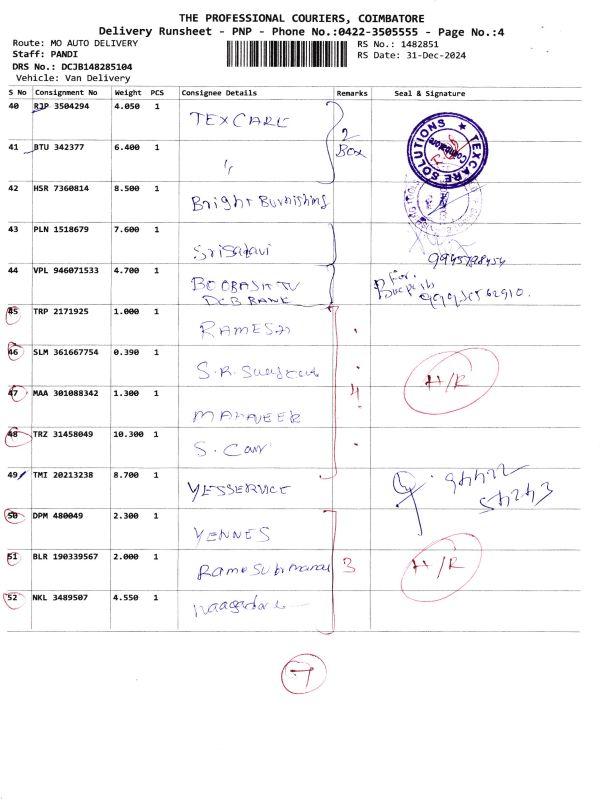 THE PROFESSIONAL COURIERS, COIMBATORE
Delivery Runsheet - PNP - Phone No.:0422-3505555 - Page No.:4
Route: MO AUTO DELIVERY
RS No.: 1482851
Staff: PANDI
RS Date: 31-Dec-2024
DRS No.: DCJB148285104
Vehicle: Van Delivery
S No Consignment No Weight PCS Consignee Details Remarks Seal & Signature
40 RJP 3504294 4.050 1 TEXCARE
2 Box
TEXCARE SOLUTIONS
Coimbatore
41 BTU 342377 6.400 1 "
42 HSR 7360814 8.500 1 Bright Burnishing
43 PLN 1518679 7.600 1
44 VPL 946071533 4.700 1
DCB BANK
For.
45 TRP 2171925 1.000 1 RAMESH
46 SLM 361667754 0.390 1 S.R.
H/R
47 MAA 301088342 1.300 1 MAHAVEER
4
48 TRZ 31458049 10.300 1 S.
49 TMI 20213238 8.700 1 YESSERVICE
94422
54243
50 DPM 480049 2.300 1 VENNES
51 BLR 190339567 2.000 1 3
H/R
52 NKL 3489507 4.550 1
7